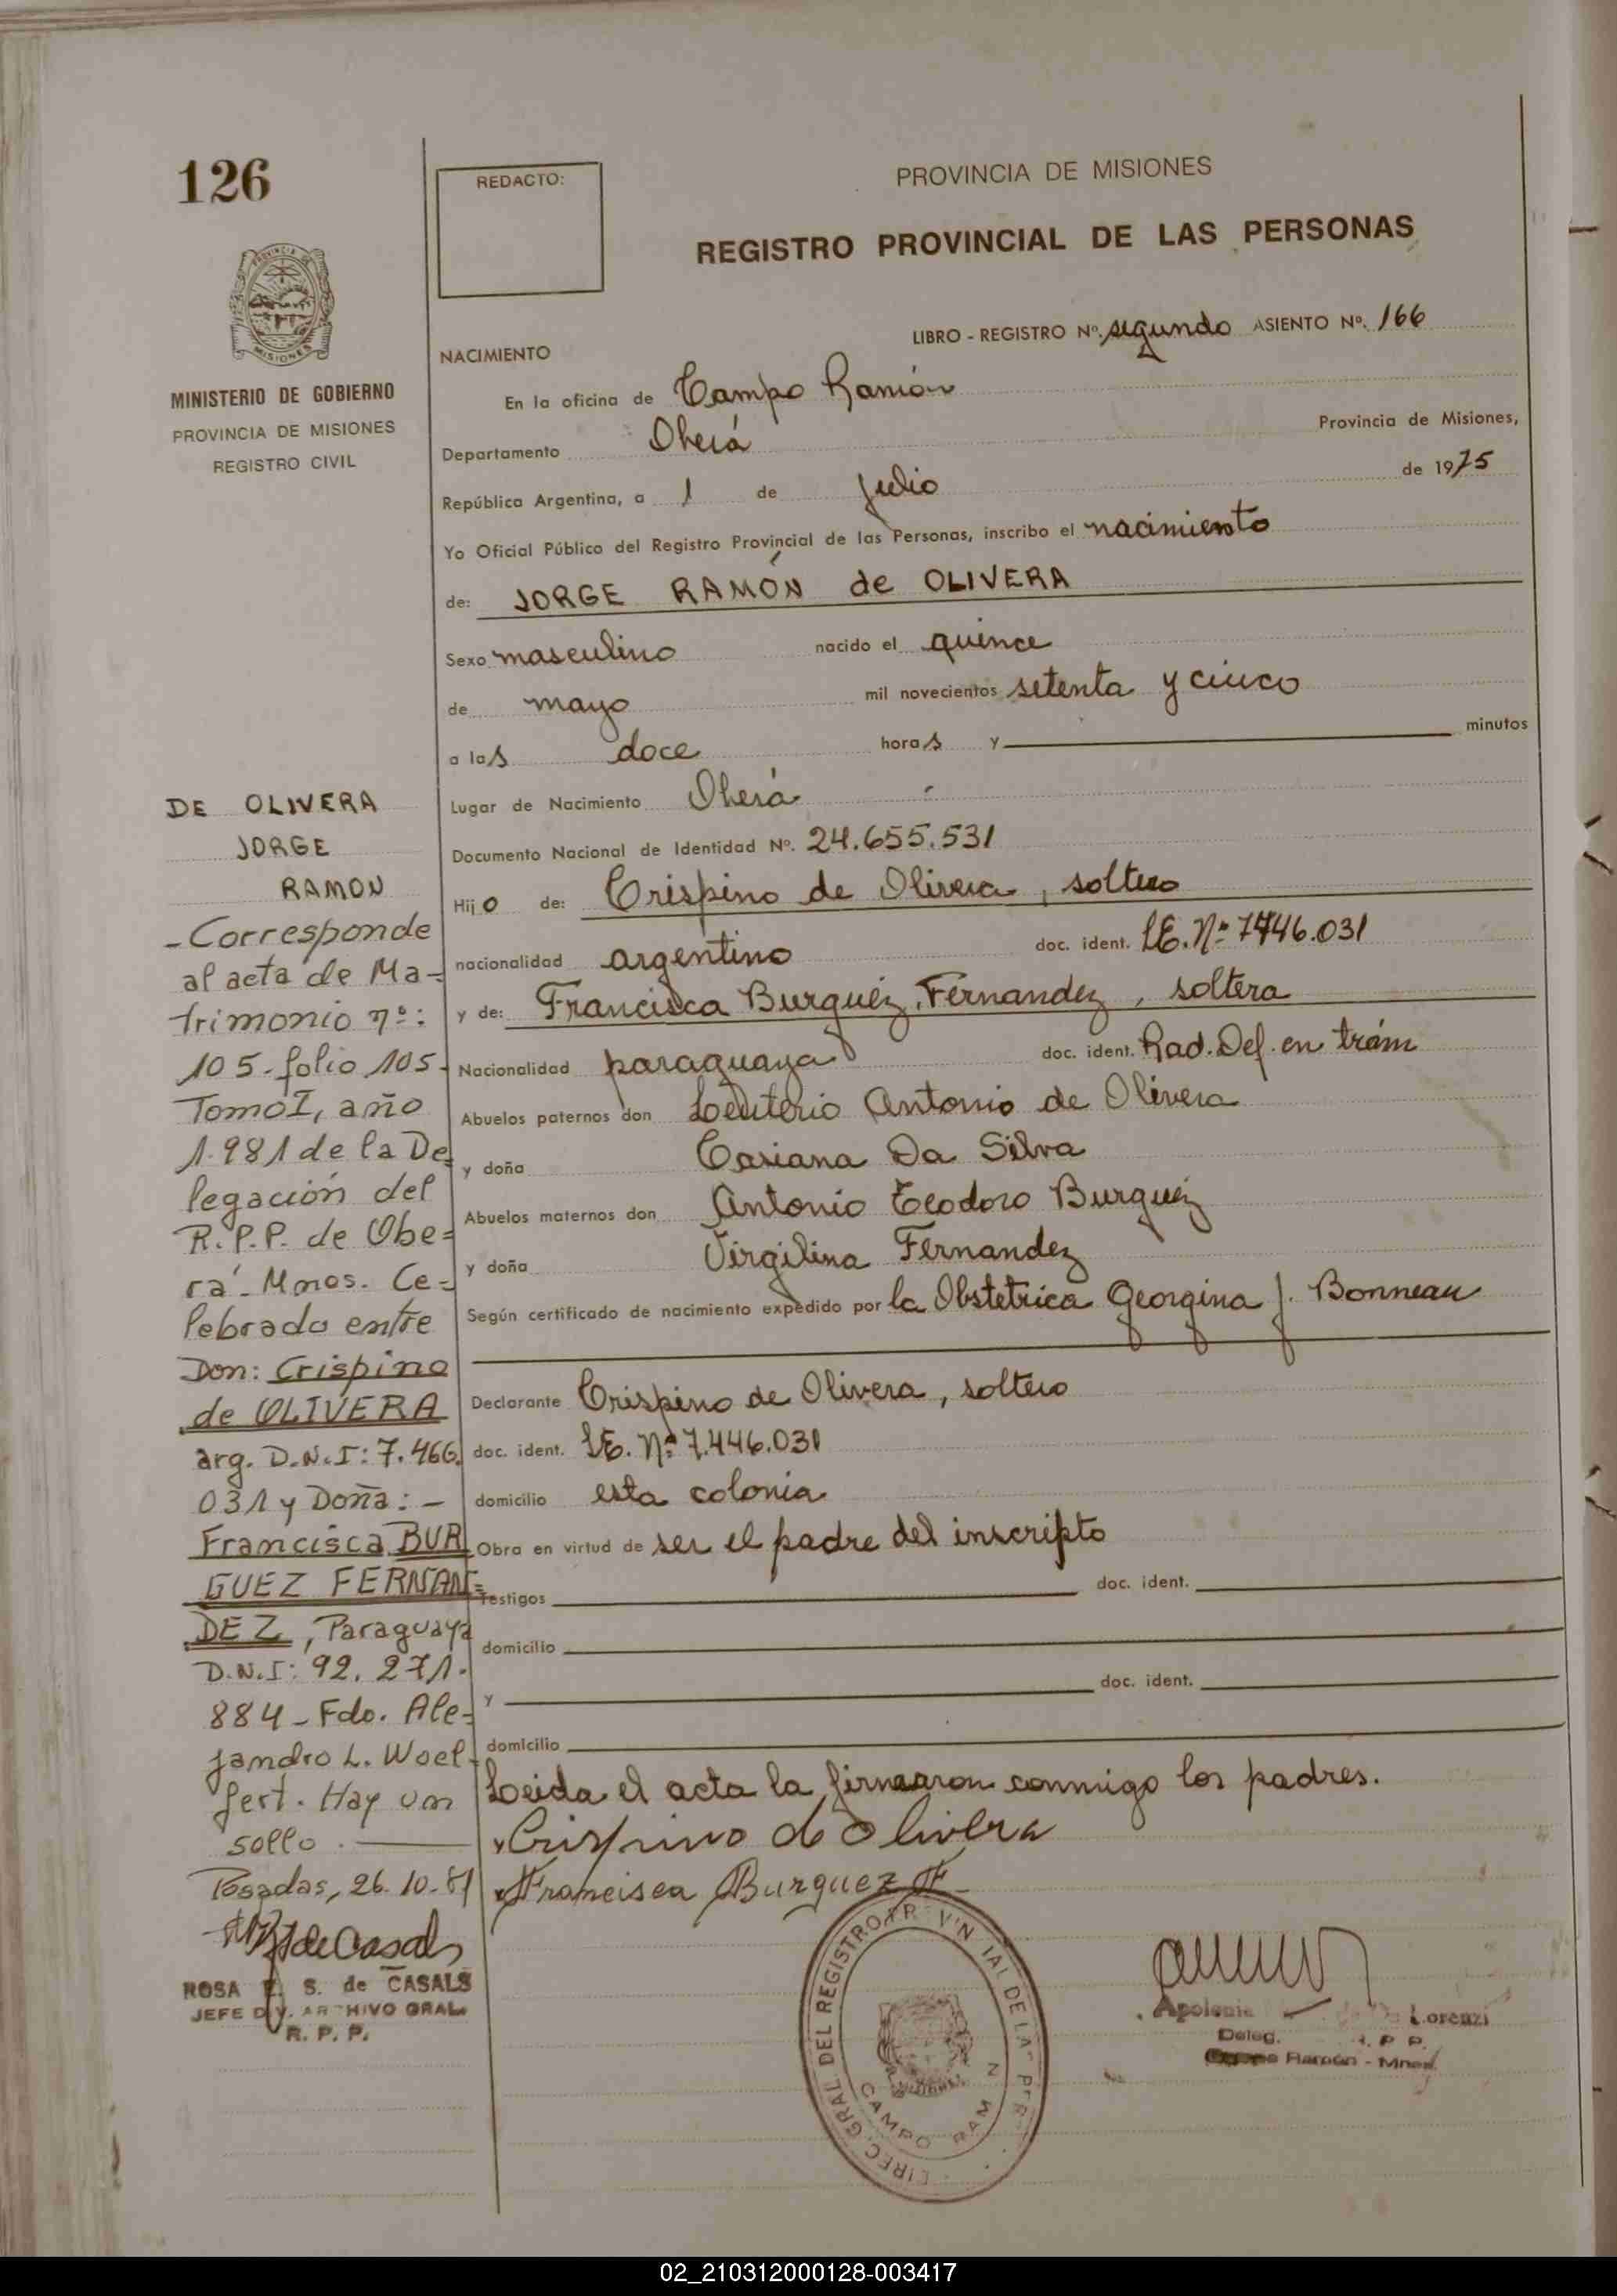 126
REDACTO:
PROVINCIA DE MISIONES
REGISTRO PROVINCIAL DE LAS PERSONAS
PROVINCIA DE
MISIONES
MINISTERIO DE GOBIERNO
PROVINCIA DE MISIONES
REGISTRO CIVIL
LIBRO - REGISTRO Nº. segundo ASIENTO Nº. 166
NACIMIENTO
En la oficina de Campo Ramón
Departamento Oberá Provincia de Misiones,
República Argentina, a 1 de Julio de 1975
Yo Oficial Público del Registro Provincial de las Personas, inscribo el nacimiento
de: JORGE RAMÓN de OLIVERA
Sexo masculino nacido el quince
de mayo mil novecientos setenta y cinco
a las doce horas y minutos
Lugar de Nacimiento Oberá
Documento Nacional de Identidad Nº. 24.655.531
Hijo de: Crispino de Olivera, soltero
nacionalidad argentino doc. ident. LE. Nº 7446.031
y de: Francisca Burguéz Fernandez, soltera
Nacionalidad paraguaya doc. ident. Rad. Def. en trám
Abuelos paternos don Leuterio Antonio de Olivera
y doña Casiana Da Silva
Abuelos maternos don Antonio Teodoro Burguéz
y doña Virgilina Fernandez
Según certificado de nacimiento expedido por la Obstetrica Georgina J. Bonneau
Declarante Crispino de Olivera, soltero
doc. ident. LE. Nº 7.446.031
domicilio esta colonia
Obra en virtud de ser el padre del inscripto
Testigos doc. ident.
domicilio
y doc. ident.
domicilio
Leida el acta la firmaron conmigo los padres.
Crispino de Olivera
Francisca Burguez F
DE OLIVERA
JORGE
RAMON
- Corresponde
al acta de Ma-
trimonio nº:
105 - folio 105-
Tomo I, año
1.981 de la De
legación del
R.P.P. de Obe=
rá - Mnes. Ce=
lebrado entre
Don: Crispino
de OLIVERA
arg. D.N.I: 7.466.
031 y Doña: -
Francisca BUR
GUEZ FERNAN=
DEZ, Paraguaya
D.N.I: 92.271.
884 - Fdo. Ale=
jandro L. Woel-
fert. Hay un
sello.
Posadas, 26.10.81
de Casals
ROSA E. S. de CASALS
JEFE DIV. ARCHIVO GRAL.
R. P. P.
DIREC. GRAL DEL REGISTRO PROVINCIAL DE LAS PER
CAMPO RAMON
Apolonia Lorenzi
Deleg. R. P. P.
Campo Ramón - Mnes.
02_210312000128-003417